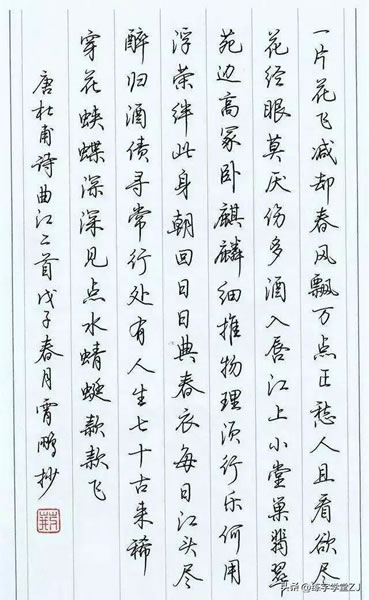 一片花飞减却春风飘万点正愁人且看欲尽
花经眼莫厌伤多酒入唇江上小堂巢翡翠
苑边高冢卧麒麟细推物理须行乐何用
浮荣绊此身朝回日日典春衣每日江头尽
醉归酒债寻常行处有人生七十古来稀
穿花蛱蝶深深见点水蜻蜓款款飞
唐杜甫诗曲江二首戊子春月霄鹏抄
头条@练字学堂ZJ